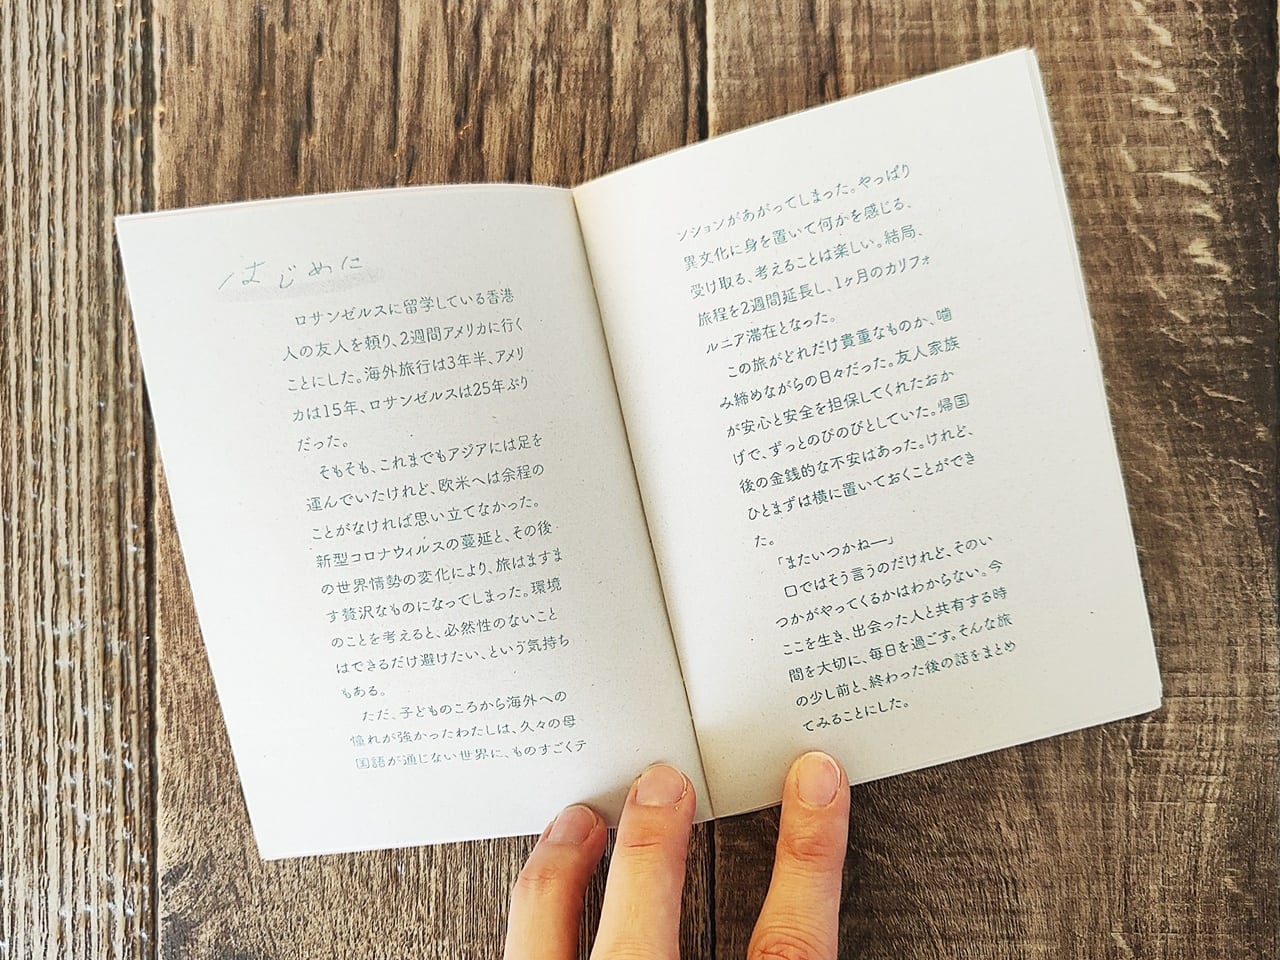 はじめに
ロサンゼルスに留学している香港
人の友人を頼り、2週間アメリカに行く
ことにした。海外旅行は3年半、アメリ
カは15年、ロサンゼルスは25年ぶり
だった。
そもそも、これまでもアジアには足を
運んでいたけれど、欧米へは余程の
ことがなければ思い立てなかった。
新型コロナウィルスの蔓延と、その後
の世界情勢の変化により、旅はますま
す贅沢なものになってしまった。環境
のことを考えると、必然性のないこと
はできるだけ避けたい、という気持ち
もある。
ただ、子どものころから海外への
憧れが強かったわたしは、久々の母
国語が通じない世界に、ものすごくテ
ンションがあがってしまった。やっぱり
異文化に身を置いて何かを感じる、
受け取る、考えることは楽しい。結局、
旅程を2週間延長し、1ヶ月のカリフォ
ルニア滞在となった。
この旅がどれだけ貴重なものか、噛
み締めながらの日々だった。友人家族
が安心と安全を担保してくれたおか
げで、ずっとのびのびとしていた。帰国
後の金銭的な不安はあった。けれど、
ひとまずは横に置いておくことができ
た。
「またいつかねー」
口ではそう言うのだけれど、そのい
つかがやってくるかはわからない。今
ここを生き、出会った人と共有する時
間を大切に、毎日を過ごす。そんな旅
の少し前と、終わった後の話をまとめ
てみることにした。